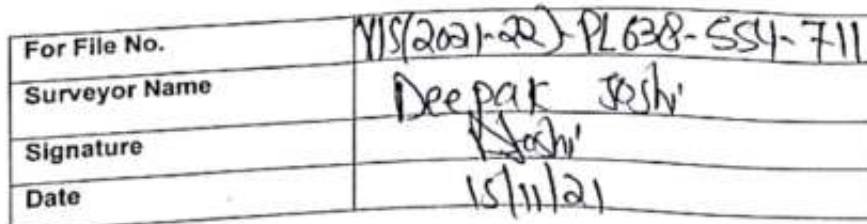 For File No. VIS(2021-22)-PL638-554-711
Surveyor Name Deepak Joshi
Signature DJoshi
Date 15/11/21